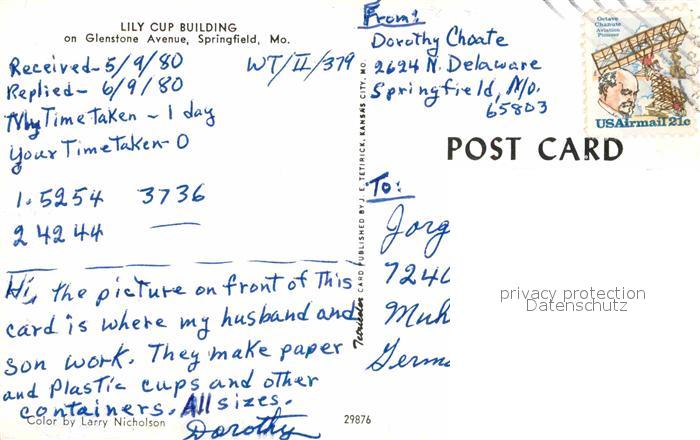 LILY CUP BUILDING
on Glenstone Avenue, Springfield, Mo.
Received - 5/9/80 WT/II/379
Replied - 6/9/80
My Time Taken - 1 day
Your Time Taken - 0
1. 5254 3736
2 4244
Hi, the picture on front of this
card is where my husband and
son work. They make paper
and Plastic cups and other
containers. All sizes.
Dorothy
Color by Larry Nicholson
29876
Tetricolor CARD PUBLISHED BY J. E. TETIRICK, KANSAS CITY, MO.
From:
Dorothy Choate
2624 N. Delaware
Springfield, Mo.
65803
Octave
Chanute
Aviation
Pioneer
USAirmail 21c
POST CARD
To:
Jorg
724
Muh
Germ
privacy protection
Datenschutz